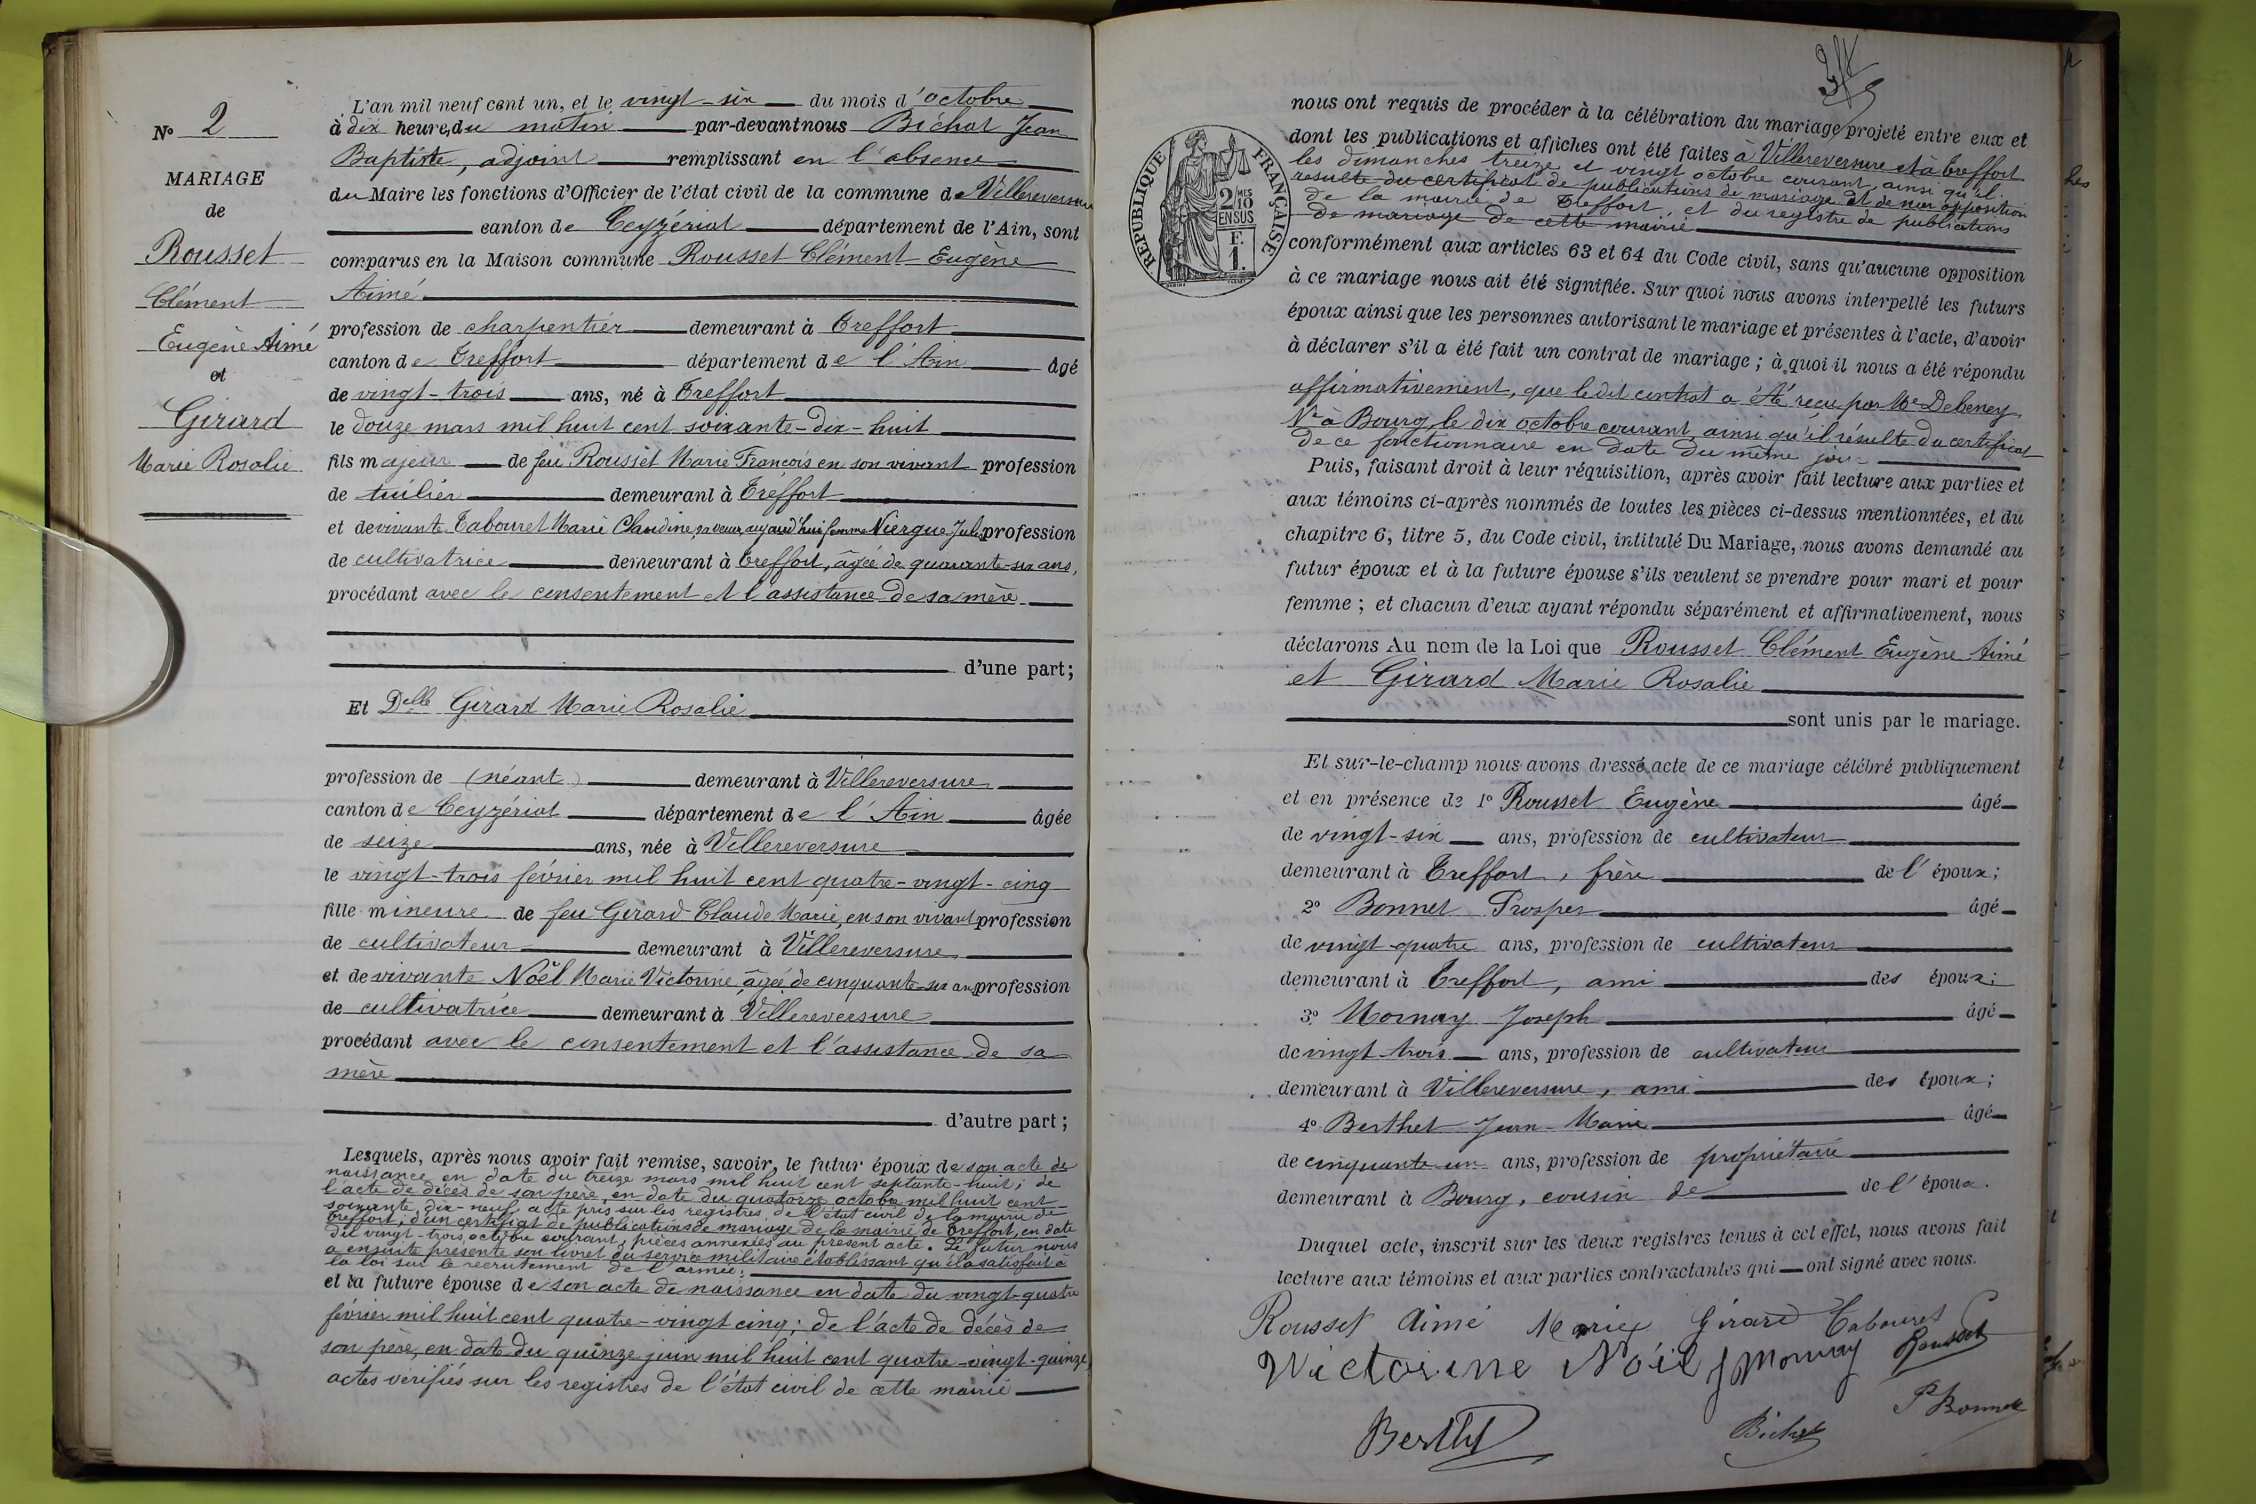 N° 2
MARIAGE
de
Rousset
Clément
Eugène Aimé
et
Girard
Marie Rosalie
L'an mil neuf cent un, et le vingt-six du mois d'octobre
à dix heures du matin par-devant nous Bichat Jean
Baptiste, adjoint remplissant en l'absence
du Maire les fonctions d'Officier de l'état civil de la commune de Villereversure
canton de Ceyzériat département de l'Ain, sont
comparus en la Maison commune Rousset Clément Eugène
Aimé
profession de charpentier demeurant à Treffort
canton de Treffort département de l'Ain âgé
de vingt-trois ans, né à Treffort
le douze mars mil huit cent soixante-dix-huit
fils majeur de feu Rousset Marie François en son vivant profession
de tuilier demeurant à Treffort
et de vivante Tabouret Marie Claudine sa veuve, aujourd'hui femme Niergue Jules profession
de cultivatrice demeurant à Treffort, âgée de quarante-six ans,
procédant avec le consentement et l'assistance de sa mère
d'une part;
Et Delle Girard Marie Rosalie
profession de (néant) demeurant à Villereversure
canton de Ceyzériat département de l'Ain âgée
de seize ans, née à Villereversure
le vingt-trois février mil huit cent quatre-vingt-cinq
fille mineure de feu Girard Claude Marie, en son vivant profession
de cultivateur demeurant à Villereversure
et de vivante Noël Marie Victorine âgée de cinquante six ans profession
de cultivatrice demeurant à Villereversure
procédant avec le consentement et l'assistance de sa
mère
d'autre part;
Lesquels, après nous avoir fait remise, savoir, le futur époux de son acte de
naissance en date du treize mars mil huit cent septante-huit; de
l'acte de décès de son père, en date du quatorze octobre mil huit cent
soixante dix-neuf, acte pris sur les registres de l'état civil de la mairie de
Treffort; d'un certificat de publications de mariage de la mairie de Treffort, en date
du vingt-trois octobre courant, pièces annexées au présent acte. Le futur nous
a ensuite présenté son livret du service militaire établissant qu'il a satisfait à
la loi sur le recrutement de l'armée;
et la future épouse de son acte de naissance en date du vingt-quatre
février mil huit cent quatre-vingt cinq; de l'acte de décès de
son père, en date du quinze juin mil huit cent quatre-vingt-quinze,
actes vérifiés sur les registres de l'état civil de cette mairie
RÉPUBLIQUE FRANÇAISE
2/10 MES
EN SUS
F.
1.
nous ont requis de procéder à la célébration du mariage projeté entre eux et
dont les publications et affiches ont été faites à Villereversure et à Treffort
les dimanches treize et vingt octobre courant, ainsi qu'il
résulte du certificat de publications de mariage et de non opposition
de la mairie de Treffort, et du registre de publications
de mariage de cette mairie
conformément aux articles 63 et 64 du Code civil, sans qu'aucune opposition
à ce mariage nous ait été signifiée. Sur quoi nous avons interpellé les futurs
époux ainsi que les personnes autorisant le mariage et présentes à l'acte, d'avoir
à déclarer s'il a été fait un contrat de mariage; à quoi il nous a été répondu
affirmativement, que ledit contrat a été reçu par Me Debeney
Nre à Bourg le dix octobre courant ainsi qu'il résulte du certificat
de ce fonctionnaire en date du même jour
Puis, faisant droit à leur réquisition, après avoir fait lecture aux parties et
aux témoins ci-après nommés de toutes les pièces ci-dessus mentionnées, et du
chapitre 6, titre 5, du Code civil, intitulé Du Mariage, nous avons demandé au
futur époux et à la future épouse s'ils veulent se prendre pour mari et pour
femme; et chacun d'eux ayant répondu séparément et affirmativement, nous
déclarons Au nom de la Loi que Rousset Clément Eugène Aimé
et Girard Marie Rosalie
sont unis par le mariage.
Et sur-le-champ nous avons dressé acte de ce mariage célébré publiquement
et en présence de 1° Rousset Eugène âgé
de vingt-six ans, profession de cultivateur
demeurant à Treffort, frère de l'époux;
2° Bonnet Prosper âgé
de vingt-quatre ans, profession de cultivateur
demeurant à Treffort, ami des époux;
3° Mornay Joseph âgé
de vingt trois ans, profession de cultivateur
demeurant à Villereversure, ami des époux;
4° Berthet Jean-Marie âgé
de cinquante-un ans, profession de propriétaire
demeurant à Bourg, cousin de de l'époux.
Duquel acte, inscrit sur les deux registres tenus à cet effet, nous avons fait
lecture aux témoins et aux parties contractantes qui ont signé avec nous.
Rousset Aimé Marie Girard Tabouret
Victorine Noël J Mornay Rousset
Berthet Bichat P Bonnet